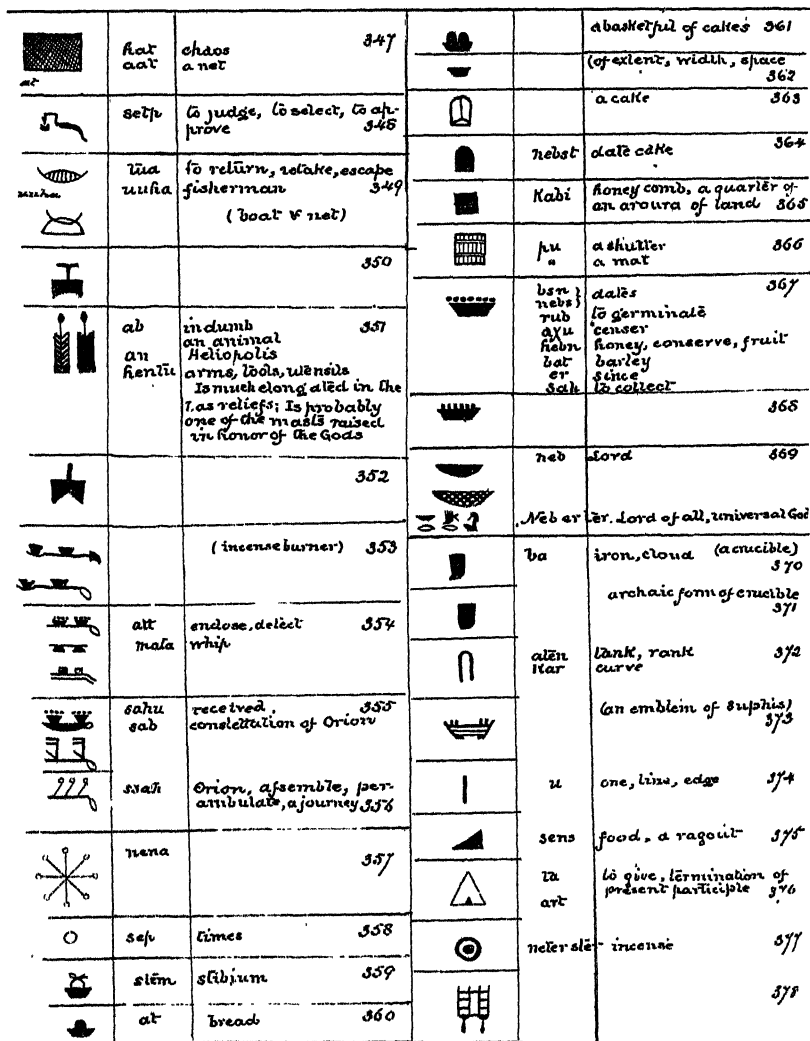 hat chaos 347
aat a net
at
setp to judge, to select, to ap-
prove 348
tua to return, retake, escape
uuha fisherman 349
uuha
(boat & net)
350
ab in dumb 351
an animal
an Heliopolis
hentu arms, tools, utensils
Is much elongated in the
bas reliefs; Is probably
one of the masts raised
in honor of the Gods
352
(incense burner) 353
att enclose, detect 354
mata whip
sahu received, 355
sab constellation of Orion
ssah Orion, assemble, per-
ambulate, a journey 356
nena
357
sep times 358
stem stibium 359
at bread 360
a basketful of cakes 361
(of extent, width, space
362
a cake 363
nebst date cake 364
Kabi honey comb, a quarter of
an aroura of land 365
pu a shutter 366
" a mat
bsn } dates 367
nebs }
rub to germinate
aχu censer
hebn honey, conserve, fruit
bat barley
er since
sah to collect
368
neb Lord 369
Neb er ter. Lord of all, universal God
ba iron, cloud (a crucible)
370
archaic form of crucible
371
aten tank, rank 372
Kar curve
(an emblem of Suphis)
373
u one, line, edge 374
sens food, a ragout 375
ta to give, termination of
present participle 376
art
neter ste- incense 377
378